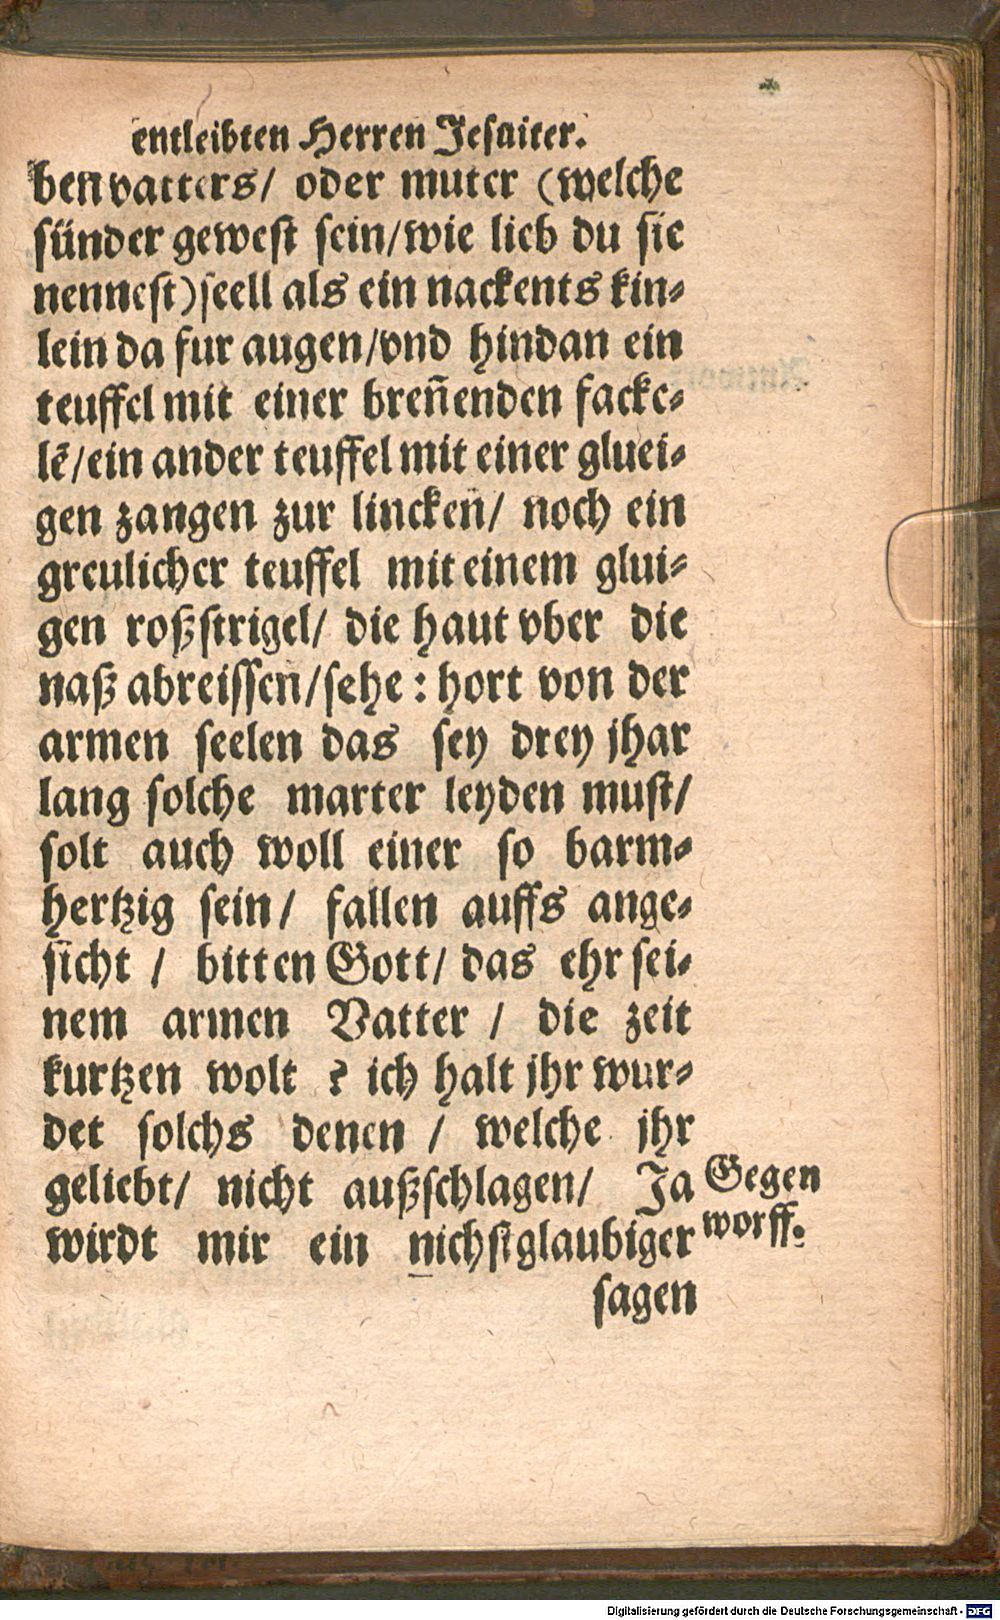 entleibten Herren Jesuiter.
ben vatters/ oder muter (welche
sünder gewest sein/wie lieb du sie
nennest)seell als ein nackents kin⸗
lein da fur augen/vnd hindan ein
teuffel mit einer breñenden facke⸗
lē/ein ander teuffel mit einer gluei⸗
gen zangen zur lincken/ noch ein
greulicher teuffel mit einem glui⸗
gen roßstrigel/ die haut vber die
naß abreissen/sehe : hort von der
armen seelen das sey drey jhar
lang solche marter leyden must/
solt auch woll einer so barm⸗
hertzig sein/ fallen auffs ange⸗
sicht / bitten Gott/ das ehr sei⸗
nem armen Vatter / die zeit
kurtzen wolt ? ich halt jhr wur⸗
det solchs denen / welche jhr
geliebt/ nicht außschlagen/ Ja
wirdt mir ein nichstglaubiger
Gegen
worff.
sagen
Digitalisierung gefördert durch die Deutsche Forschungsgemeinschaft - DFG